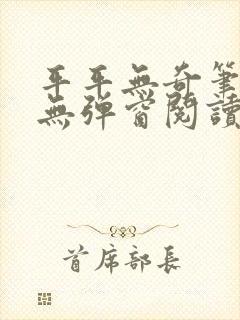 平平無奇筆
無彈窗閱讀
首席部長